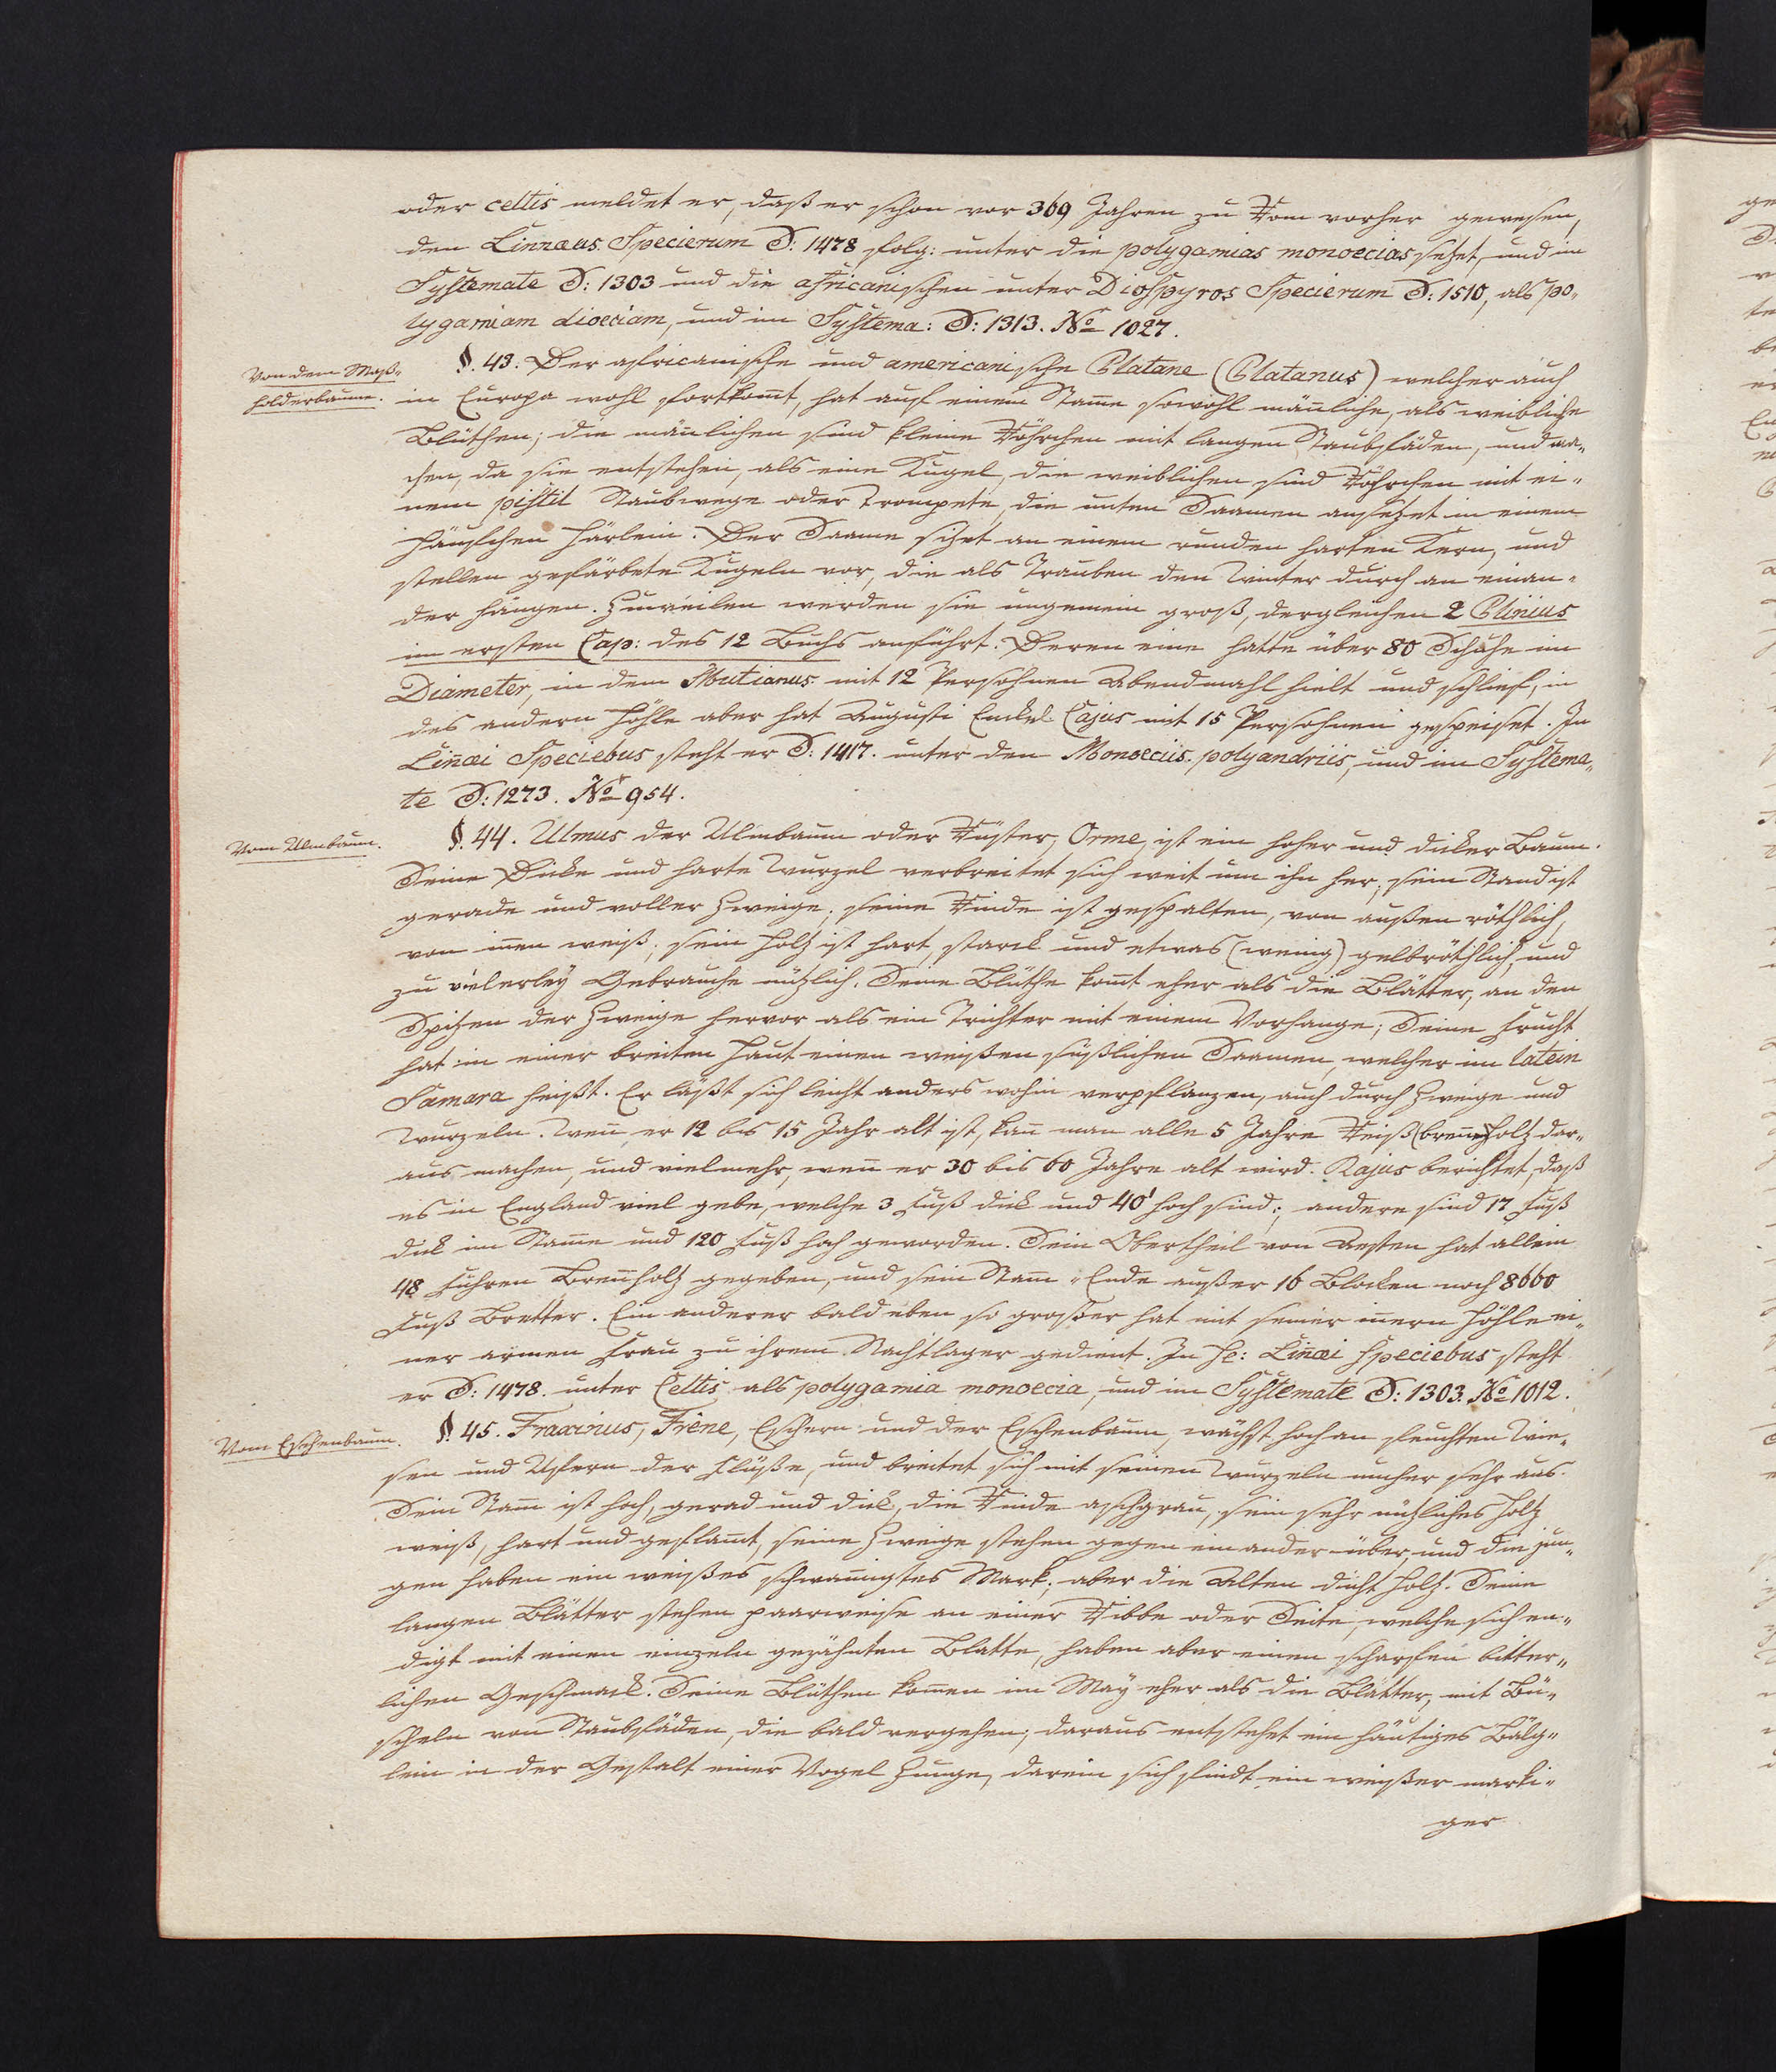 oder celtis meldet er, daß er schon vor 369 Jahren zu Rom vorher gewesen,
den Linnæus Specierum S: 1478 folg: unter die polygamias monoecias setzet, und im
Systemate S: 1303 und die africanischen unter Diospyros Specierum S: 1510, als po„
lygamiam dioeciam, und im Systema: S: 1313. No 1027.
Von dem Maß„
holderbaume.
§. 43. Der africanische und americanische Platane (Platanus) welcher auch
in Europa wohl fortkom̄t, hat auf einem Stam̄e sowohl män̄liche, als weibliche
Blüthen; die män̄lichen sind kleine Röhrchen mit langen Staubfäden, und wa„
chsen, da sie entstehen, als eine Kugel, die weiblichen sind Röhrchen mit ei„
nem pistil Staubwege oder Trompete, die unten Saamen ansetzet in einem
Häufchen Härlein. Der Saame sitzt an einem runden harten Kern, und
stellen gefärbete Kugeln vor, die als Trauben den Winter durch an einan„
der hängen. Zuweilen werden sie ungemein groß, dergleichen 2 Plinius
im ersten Cap: des 12 Buchs anführt. Deren eine hatte über 80 Schuhe im
Diameter, in dem Mutianus mit 12 Persohnen Abendmahl hielt und schlief, in
des andern Höhle aber hat Augusti Enckel Cajus mit 15 Persohnen gespeiset. In
Lin̄æi Speciebus steht er S: 1417. unter den Monoeciis polyandriis, und im Systema„
te S: 1273. No 954.
Vom Ulmbaum.
§. 44. Ulmus der Ulmbaum oder Rüster, Orme, ist ein hoher und dicker Baum.
Seine Dicke und harte Wurzel verbreitet sich weit um ihn her; sein Stand ist
gerade und voller Zweige; seine Rinde ist gespalten, von außen röthlich,
von in̄en weiß; sein Holz ist hart, starck und etwas (wenig) gelbröthlich, und
zu vielerley Gebrauche nützlich. Seine Blüthe kom̄t eher als die Blätter, an den
Spitzen der Zweige hervor als ein Trichter mit einem Vorhange; Seine Frucht
hat in einer breiten Haut einen weißen süßlichen Saamen, welcher im latein
Samara heißt. Er läßt sich leicht anders wohin verpflanzen, auch durch Zweige und
Wurzeln. Wen̄ er 12 bis 15 Jahr alt ist, kan̄ man alle 5 Jahre Reiß(bren̄)holz dar„
aus machen, und vielmehr, wen̄ er 30 bis 60 Jahre alt wird. Rajus berichtet, daß
es in England viel gebe, welche 3 Fuß dick und 40' hoch sind; andere sind 17 Fuß
dick im Stam̄e und 120 Fuß hoch geworden. Sein Obertheil von Aesten hat allein
48 Fuhren Bren̄holz gegeben, und sein Stam̄ „ Ende außer 16 Blocken noch 8660
Fuß Bretter. Ein anderer bald eben so großer hat mit seiner in̄ern Höhle ei„
ner armen Frau zu ihrem Nachtlager gedient. In He: Lin̄æi Speciebus steht
er S: 1478. unter Celtis als polygamia monoecia, und im Systemate S: 1303. No 1012.
Vom Eschenbaum.
§. 45. Fraxinus, Frêne, Eschern und der Eschenbaum, wächst hoch an feuchten Wie„
sen und Ufern der Flüße, und breitet sich mit seinen Wurzeln umher sehr aus.
Sein Stam̄ ist hoch, gerad und dick, die Rinde aschgrau, sein sehr nützliches Holz
weiß, hart und geflam̄t, seine Zweige stehen gegen einander über, und die jun„
gen haben ein weißes schwam̄igtes Mark; aber die Alten dicht Holz. Seine
langen Blätter stehen paarweise an einer Ribbe oder Seite, welche sich en„
digt mit einen einzeln gezähnten Blatte, haben aber einen scharfen bitter„
lichen Geschmack. Seine Blüthen kom̄en im May eher als die Blätter, mit Bü„
scheln von Staubfäden, die bald vergehen; daraus entstehet ein häutiges Bälg„
lein in der Gestalt einer Vogel Zunge, darein sich findt ein weißer marki„
ger